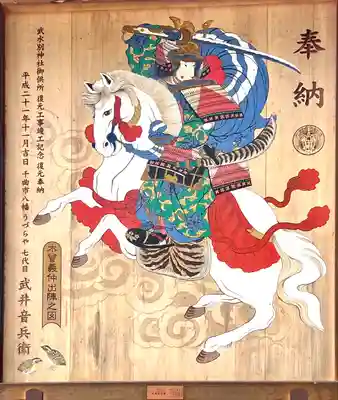 奉納
武水別神社御供所 復元工事竣工記念 復元奉納
平成二十一年十一月吉日 千曲市八幡うづらや 七代目 武井音兵衛
木曽義仲出陣之図